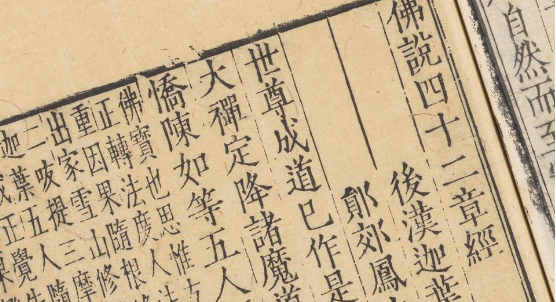 自然而至
佛說四十二章經
後漢迦葉
鄖郊鳳
世尊成道已作是
大禪定降諸魔道
憍陳如等五人
佛寶也思惟
正轉法度人
重因果隨根
出家雪山修
二 提三摩
迦葉五人隨
成正覺